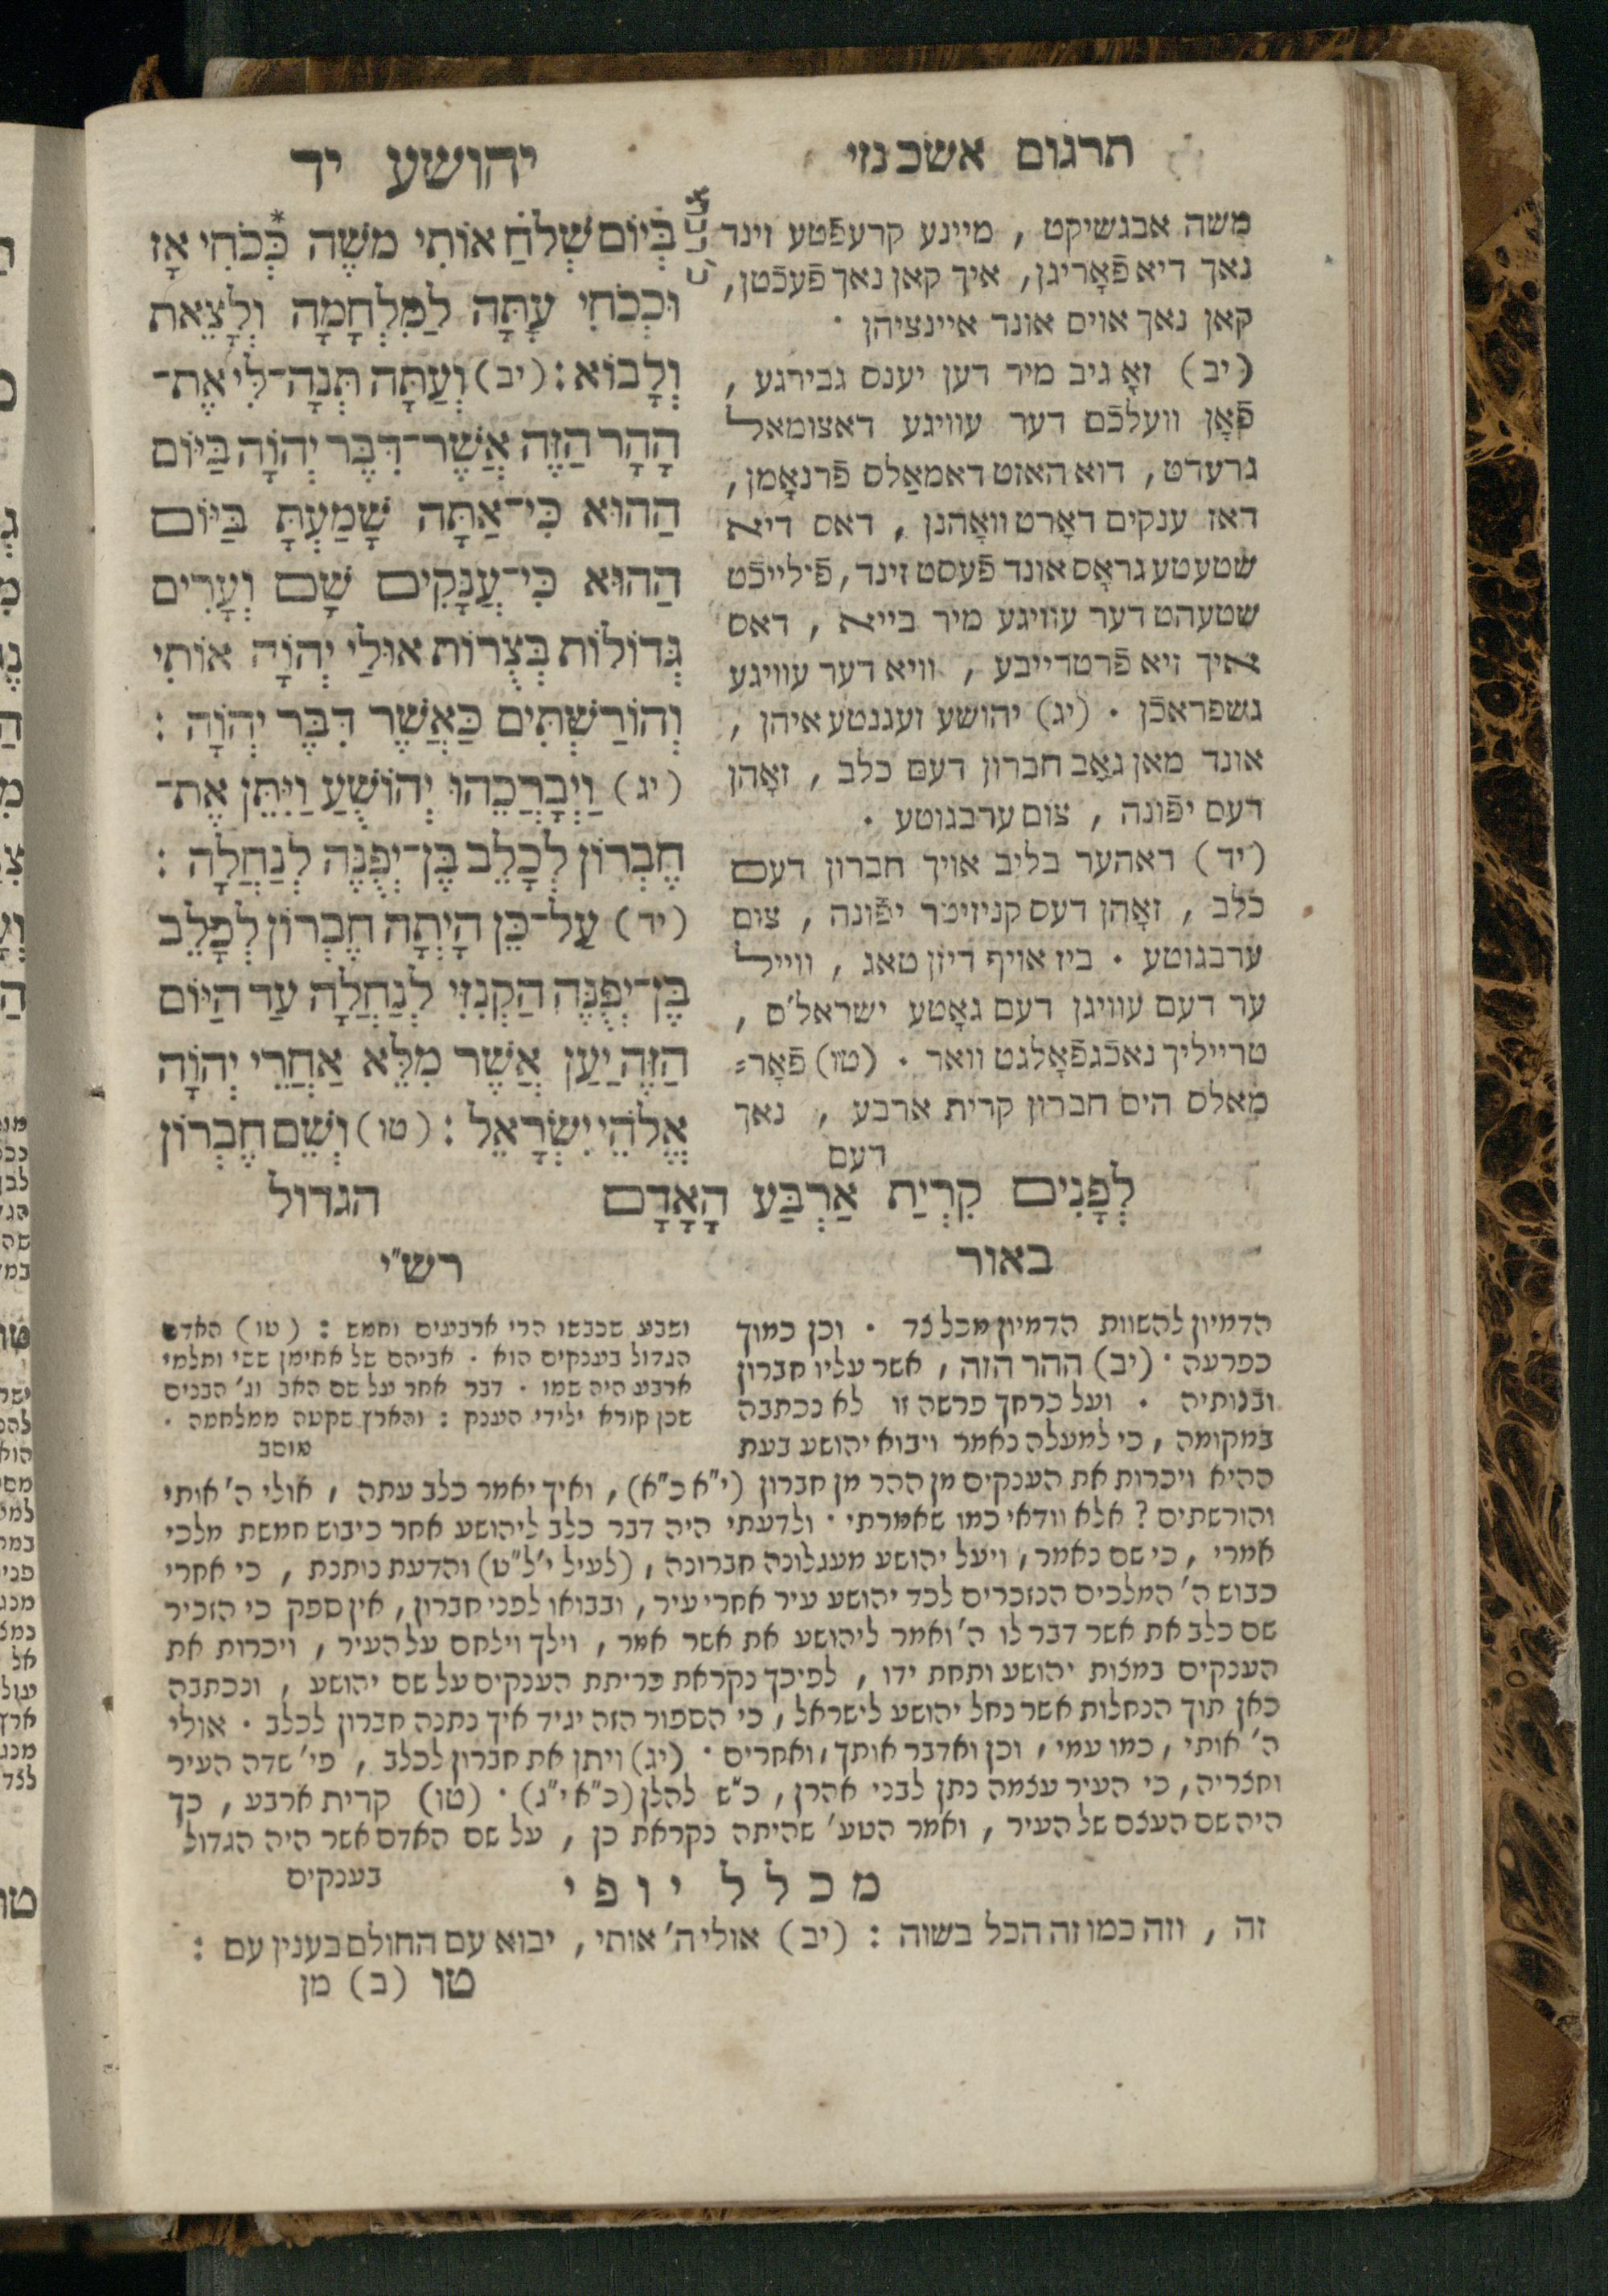 תרגום אשכנזי
יהושע יד
משה אבגשיקט , מיינע קרעפֿטע זינד
נאך דיא פֿאָריגן, איך קאן נאך פֿעכֿטן,
קאן נאך אויס אונד איינציהן ·
(יב) זאָ גיב מיר דען יענס גבירגע ,
פֿאָן וועלכֿם דער עוויגע דאצומאל
גרעדט, דוא האזט דאמאַלס פֿרנאָמן,
דאז ענקים דאָרט וואָהנן , דאס דיא
שטעטע גראָס אונד פֿעסט זינד, פֿילייכֿט
שטעהט דער עוויגע מיר בייא , דאס
איך זיא פֿרטרייבע , וויא דער עוויגע
גשפראכֿן · (יג) יהושע זעגנטע איהן ,
אונד מאן גאַב חברון דעם כלב , זאָהן
דעס יפֿונה , צום ערבגוטע ·
(יד) דאהער בליב אויך חברון דעם
כלב , זאָהן דעס קניזיטר יפֿונה , צום
ערבגוטע · ביז אויף דיזן טאג , ווייל
ער דעם עוויגן דעם גאָטע ישראל'ס ,
טרייליך נאכֿגפֿאָלגט וואר · (טו) פֿאָר=
מאלס היס חברון קרית ארבע , נאך
דעם
בְּיוֹם שְׁלֹחַ אוֹתִי מֹשֶׁה *כְּכֹחִי אָז
וּכְכֹחִי עָתָּה לַמִּלְחָמָה וְלָצֵאת
וְלָבוֹא : (יב) וְעַתָּה תְּנָה־לִּי אֶת־
הָהָר הַזֶּה אֲשֶׁר־דִּבֶּר יְהוָֹה בַּיּוֹם
הַהוּא כִּי־אַתָּה שָׁמַעְתָּ בַּיּוֹם
הַהוּא כִּי־עֲנָקִים שָׁם וְעָרִים
גְּדוֹלוֹת בְּצֻרוֹת אוּלַי יְהוָֹה אוֹתִי
וְהוֹרַשְׁתִּים כַּאֲשֶׁר דִּבֶּר יְהוָֹה :
(יג) וַיְבָרֲכֵהוּ יְהוֹשֻׁעַ וַיִּתֵּן אֶת־
חֶבְרוֹן לְכָלֵב בֶּן־יְפֻנֶּה לְנַחֲלָה :
(יד) עַל־כֵּן הָיְתָה חֶבְרוֹן לְכָלֵב
בֶּן־יְפֻנֶּה הַקְּנִזִּי לְנַחֲלָה עַד הַיּוֹם
הַזֶּה יַעַן אֲשֶׁר מִלֵּא אַחֲרֵי יְהוָֹה
אֱלֹהֵי יִשְׂרָאֵל : (טו) וְשֵׁם חֶבְרוֹן
לְפָנִים קִרְיַת אַרְבַּע הָאָדָם
הגדול
באור
הדמיון להשוות הדמיון מכל צד · וכן כמוך
כפרעה · (יב) ההר הזה , אשר עליו חברון
ובנותיה · ועל כרחך פרשה זו לא נכתבה
במקומה , כי למעלה נאמר ויבוא יהושע בעת
רש"י
ושבע שכבשו הרי ארבעים וחמש : (טו) האדם
הגדול בענקים הוא · אביהם של אחימן ששי ותלמי
ארבע היה שמו · דבר אחר על שם האב וג' הבנים
שכן קורא ילידי הענק : והארץ שקטה ממלחמה ·
ההיא ויכרות את הענקים מן ההר מן חברון (י"א כ"א), ואיך יאמר כלב עתה , אולי ה' אותי
והורשתים ? אלא וודאי כמו שאמרתי · ולדעתי היה דבר כלב ליהושע אחר כיבוש חמשת מלכי
אמרי , כי שם נאמר, ויעל יהושע מעגלונה חברונה, (לעיל י' ל"ט) והדעת נותנת , כי אחרי
כבוש ה' המלכים הנזכרים לכד יהושע עיר אחרי עיר, ובבואו לפני חברון, אין ספק כי הזכיר
שם כלב את אשר דבר לו ה' ואמר ליהושע את אשר אמר, וילך וילחם על העיר , ויכרות את
הענקים במצות יהושע ותחת ידו , לפיכך נקראת כריתת הענקים על שם יהושע , ונכתבה
כאן תוך הנחלות אשר נחל יהושע לישראל, כי הספור הזה יגיד איך נתנה חברון לכלב · אולי
ה' אותי, כמו עמי, וכן ואדבר אותך, ואחרים · (יג) ויתן את חברון לכלב , פי' שדה העיר
וחצריה, כי העיר עצמה נתן לבני אהרן, כ"ש להלן (כ"א י"ג) · (טו) קרית ארבע , כך
היה שם העצם של העיר , ואמר הטע' שהיתה נקראת כן , על שם האדם אשר היה הגדול
בענקים
מכלל יופי
זה , וזה כמו זה הכל בשוה : (יב) אולי ה' אותי, יבוא עם החולם בענין עם :
טו (ב) מן